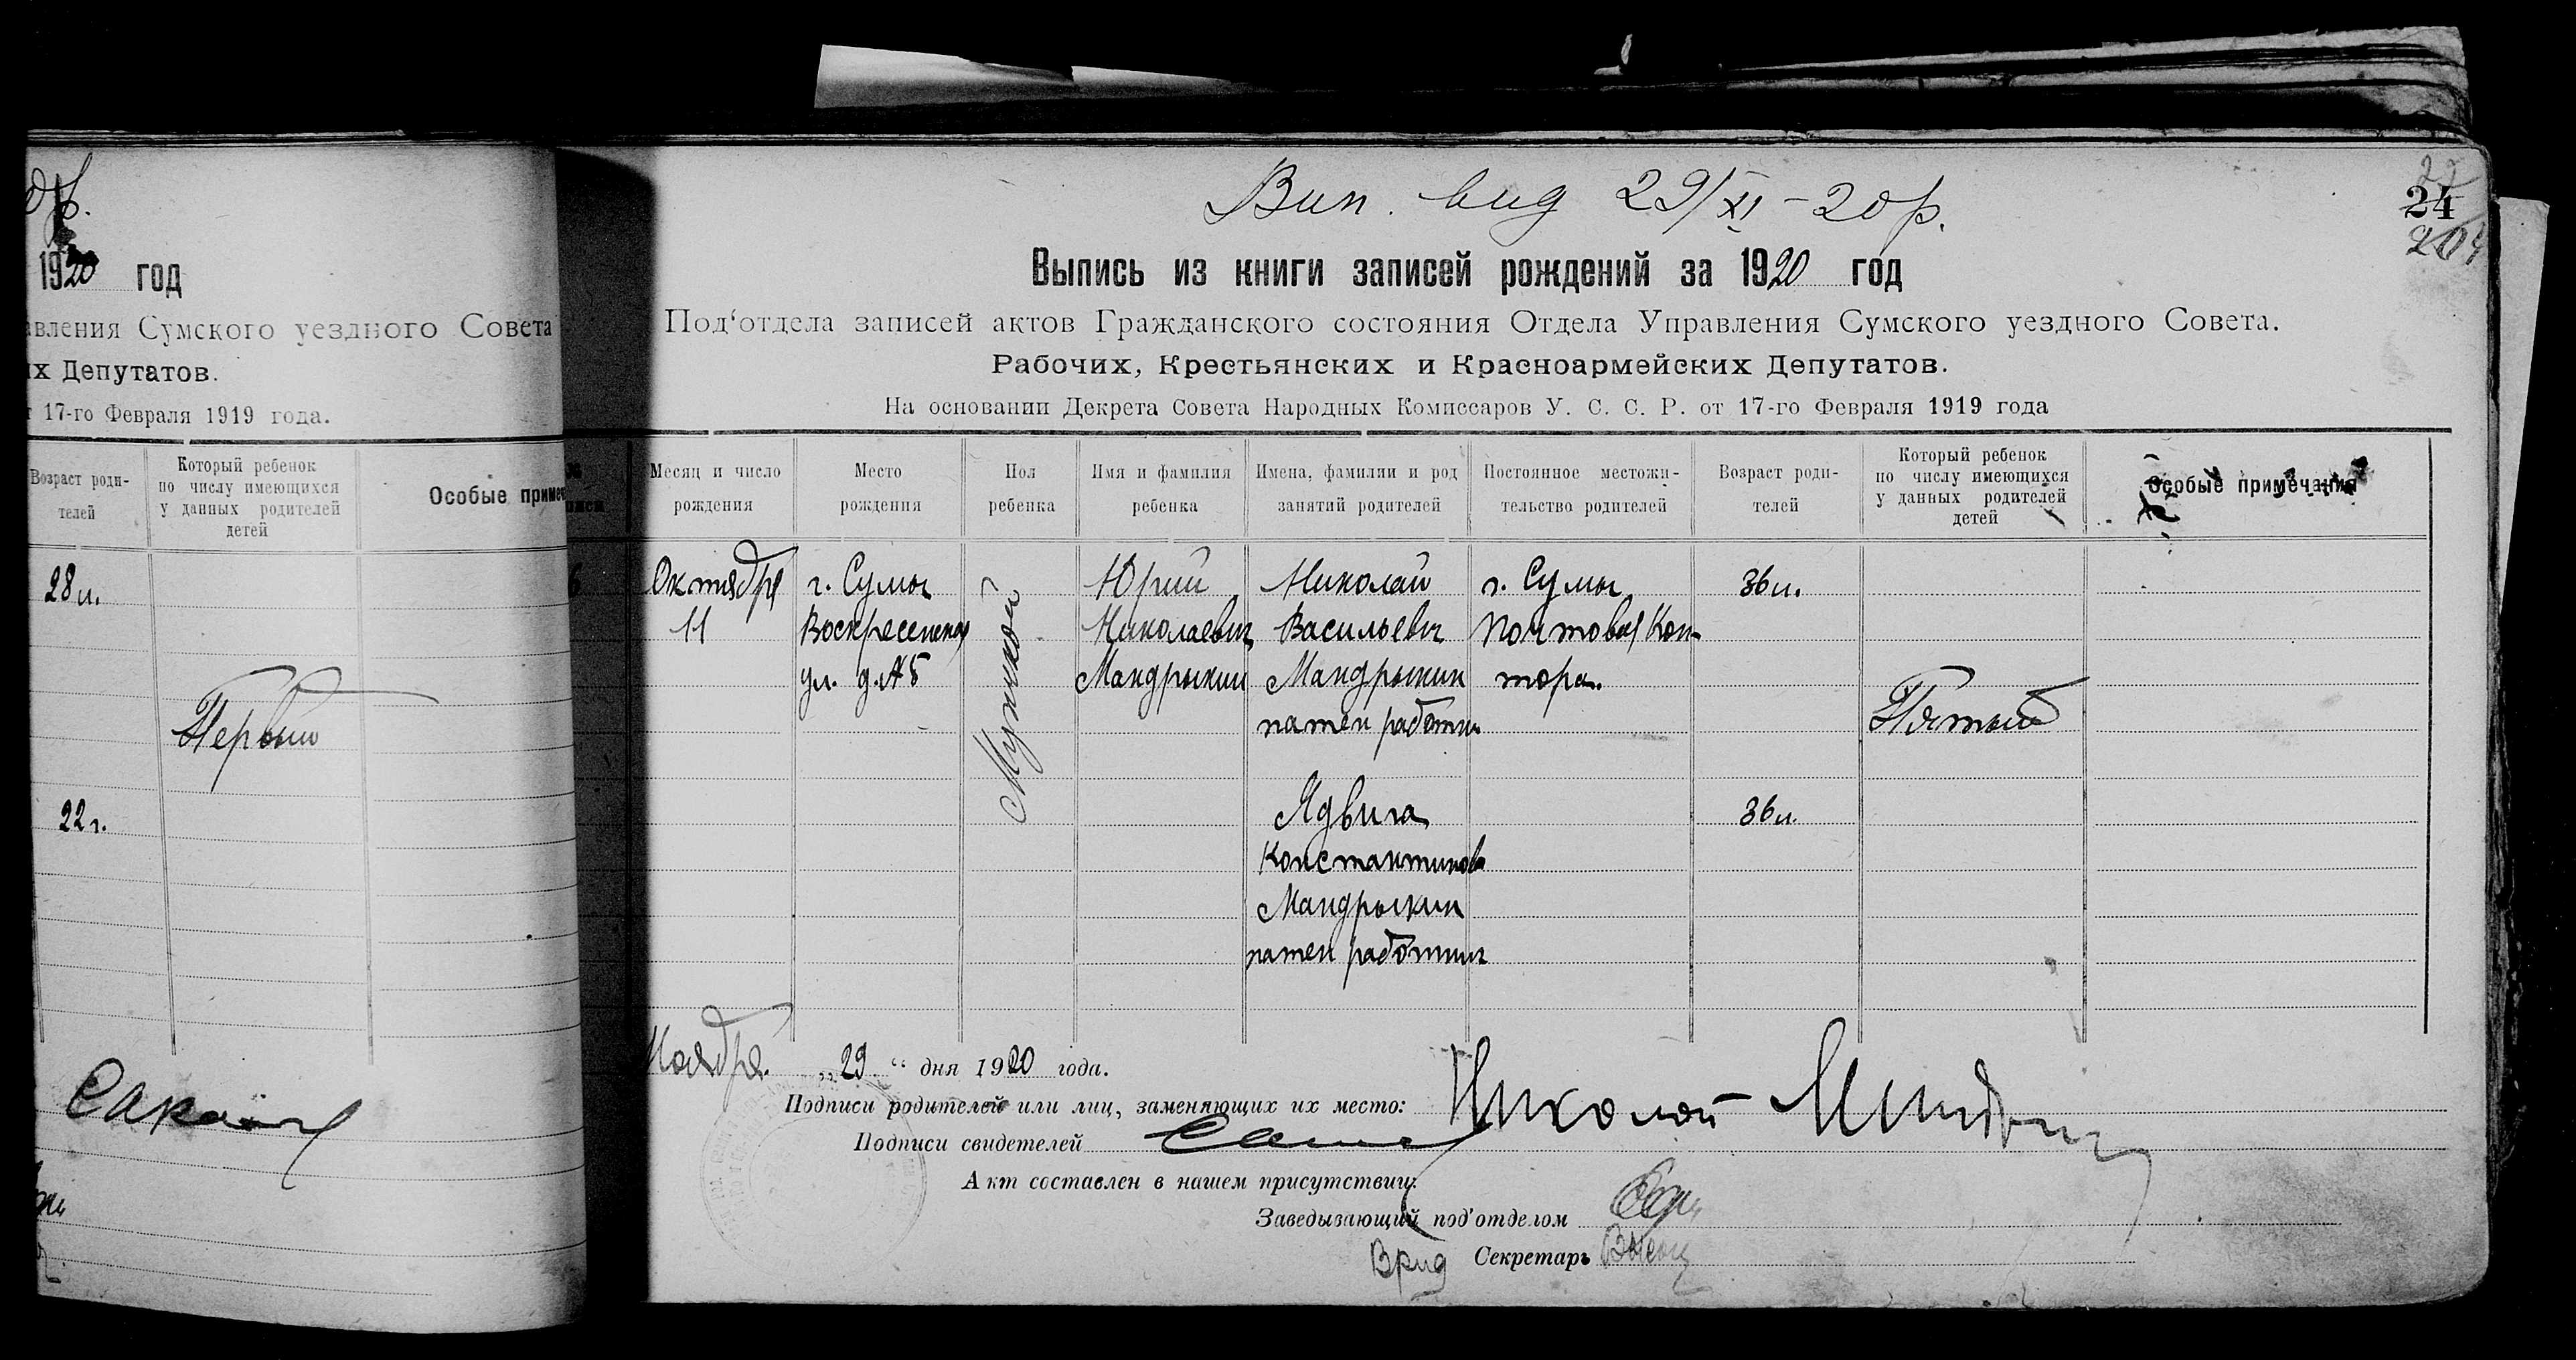 1920 год
авления Сумского уездного Совета
их Депутатов.
17-го Февраля 1919 года.
Возраст роди-
телей
Который ребенок
по числу имеющихся
у данных родителей
детей
Особые примеч
28 л.
Первый
22 г.
24
Вип. вид 29/XI-20 р.
Выпись из книги записей рождений за 1920 год
Под‘отдела записей актов Гражданского состояния Отдела Управления Сумского уездного Совета.
Рабочих, Крестьянских и Красноармейских Депутатов.
На основании Декрета Совета Народных Комиссаров У. С. С. Р. от 17-го Февраля 1919 года
Месяц и число
рождения
Место
рождения
Пол
ребенка
Имя и фамилия
ребенка
Имена, фамилии и род
занятий родителей
Постоянное местожи-
тельство родителей
Возраст роди-
телей
Который ребенок
по числу имеющихся
у данных родителей
детей
Особые примечания
Октября
11
г. Сумы
Воскресенская
ул. д. № 5
Мужской
Юрий
Николаевич
Мандрыкин
Николай
Васильевич
Мандрыкин
Ядвига
Константинова
Мандрыкин
г. Сумы
Почтовая Кон-
тора.
36 л.
36 л.
Пятый
Ноября. „29“ дня 1920 года.
Подписи родителей или лиц, заменяющих их место: Николай
Подписи свидетелей
Акт составлен в нашем присутствии:
Заведывающий под‘отделом
Врид Секретарь